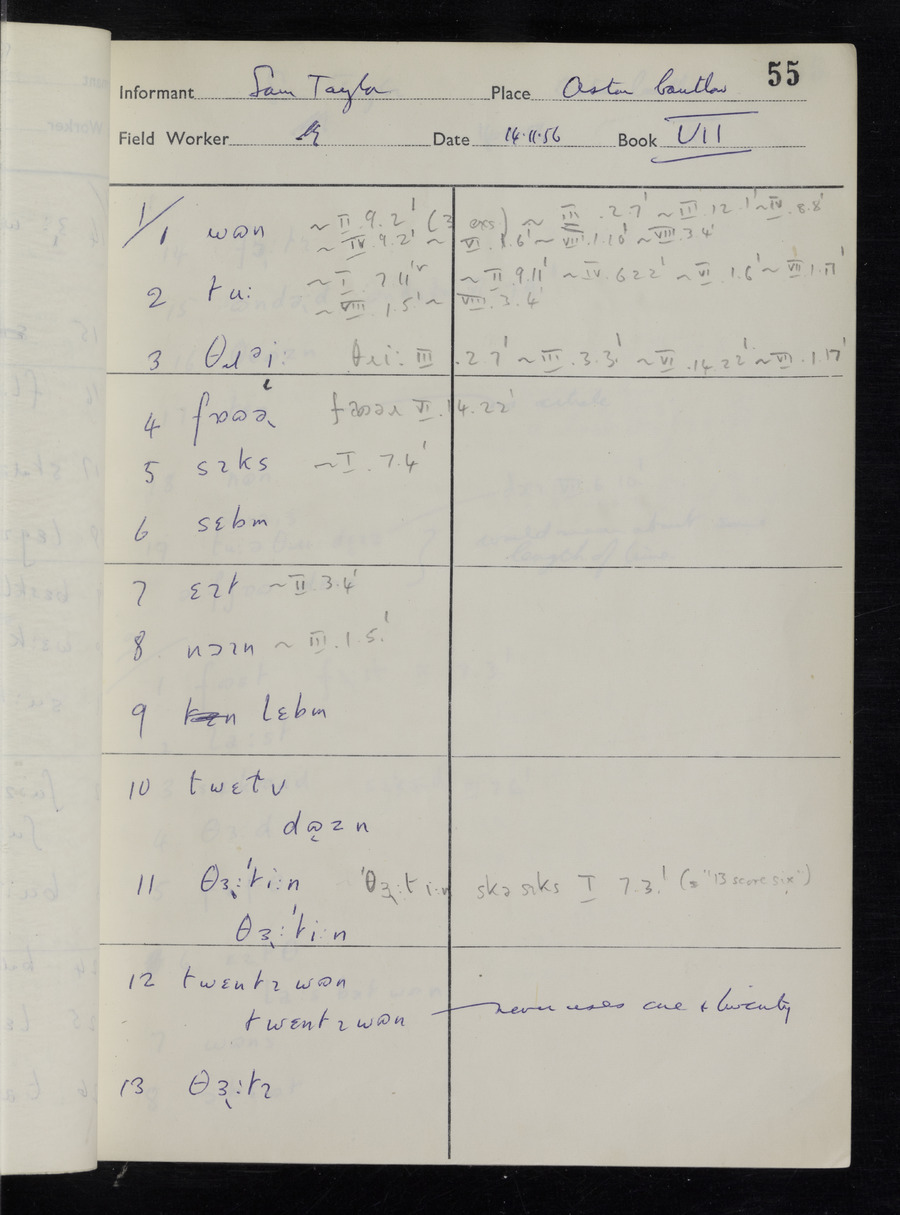 55
Informant Sam Taylor Place Aston Cantlow
Field Worker Date 14.11.56 Book VII
1/1 wɒn ~ II.9.2' (3 exs) ~ III.2.7' ~ III.12.1' ~ IV.8.8'
~ IV.9.2' ~ VI.1.6' ~ VIII.1.10' ~ VIII.3.4'
2 tu: ~ I.7.11' ~ II.9.11' ~ IV.6.22' ~ VI.1.6' ~ VII.1.11'
~ VIII.1.5' ~ VIII.3.4'
3 θɹəi: θɹi: III.2.7' ~ III.3.3' ~ VI.14.22' ~ VII.1.17'
4 VI.14.22'
5 sɪks ~ I.7.4'
6 sɛbm
7 ɛɪt ~ II.3.4'
8 nɔɪn ~ III.1.5.'
9 lɛbm
10 twɛtv
dɒ̣zn
11 θɜ˞:'ti:n 'θɜ˞:ti:n skɔ sɪks I 7.3.' (= "13 score six")
θɜ˞:'ti:n
12 twɛntɪ wɒn
twɛntɪ wɒn — never uses one & twenty
13 θɜ˞:tɪ